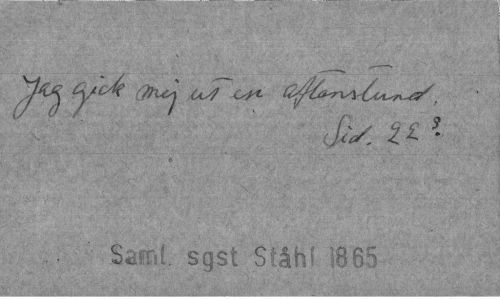 Jag gick mig ut en aftonstund.
Sid. 22 3.
Saml. sgst Ståhl 1865